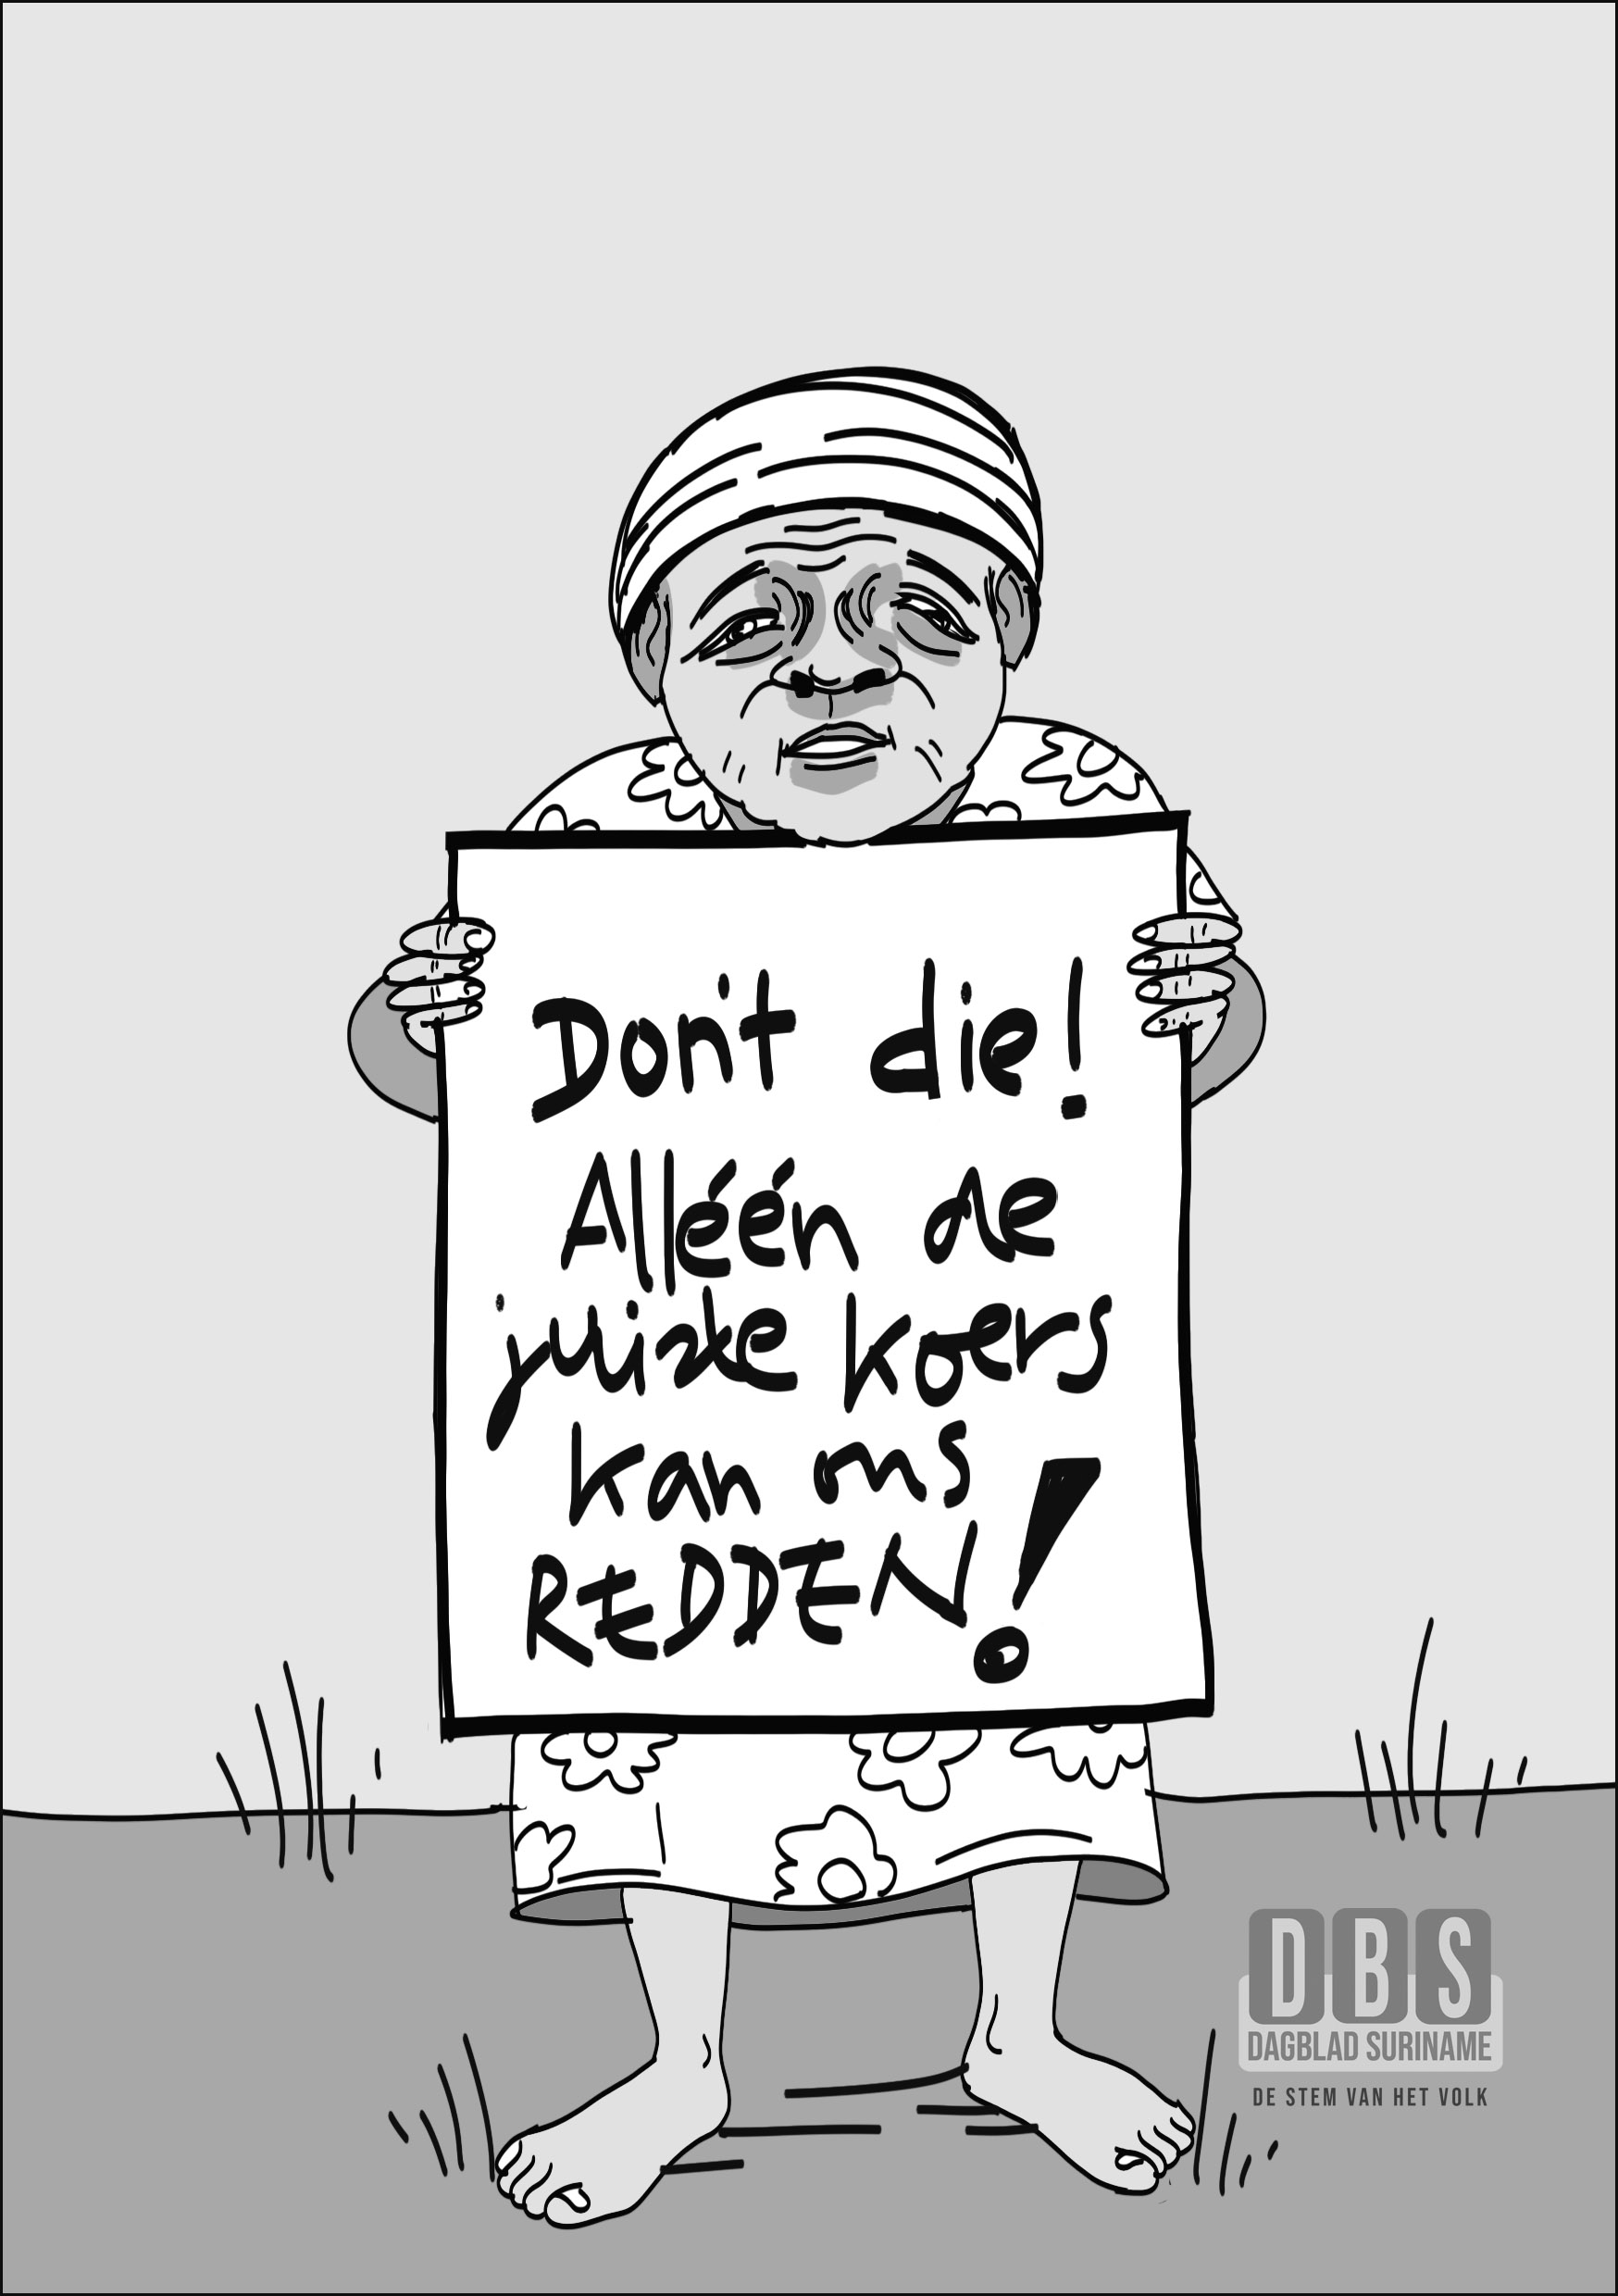 Don't die!
Alléén de
juiste koers
kan ons
REDDEN!
DBS
DAGBLAD SURINAME
DE STEM VAN HET VOLK